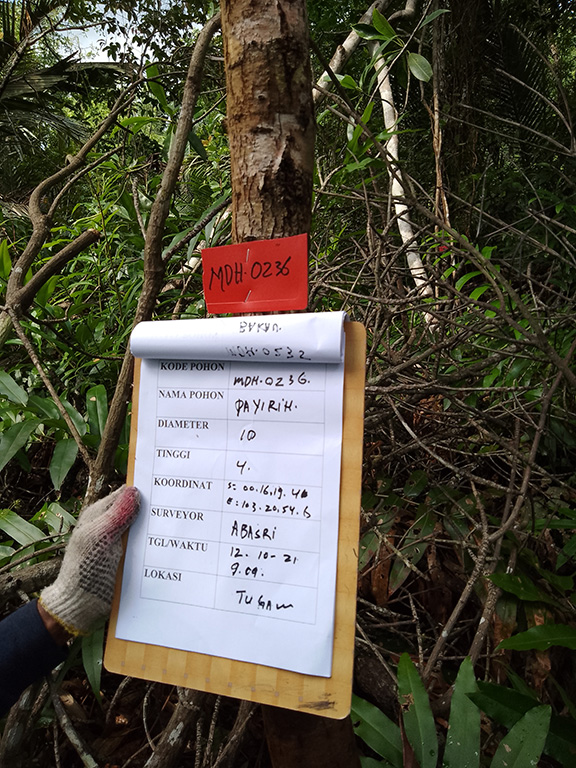 MDH.0236
KODE POHON MDH.0236.
NAMA POHON PAYIRIH.
DIAMETER 10
TINGGI 4.
KOORDINAT S= 00.16.19.46
E:103.20.54.6
SURVEYOR ABASRI
TGL/WAKTU 12.10-21
9.09.
LOKASI TUGAM